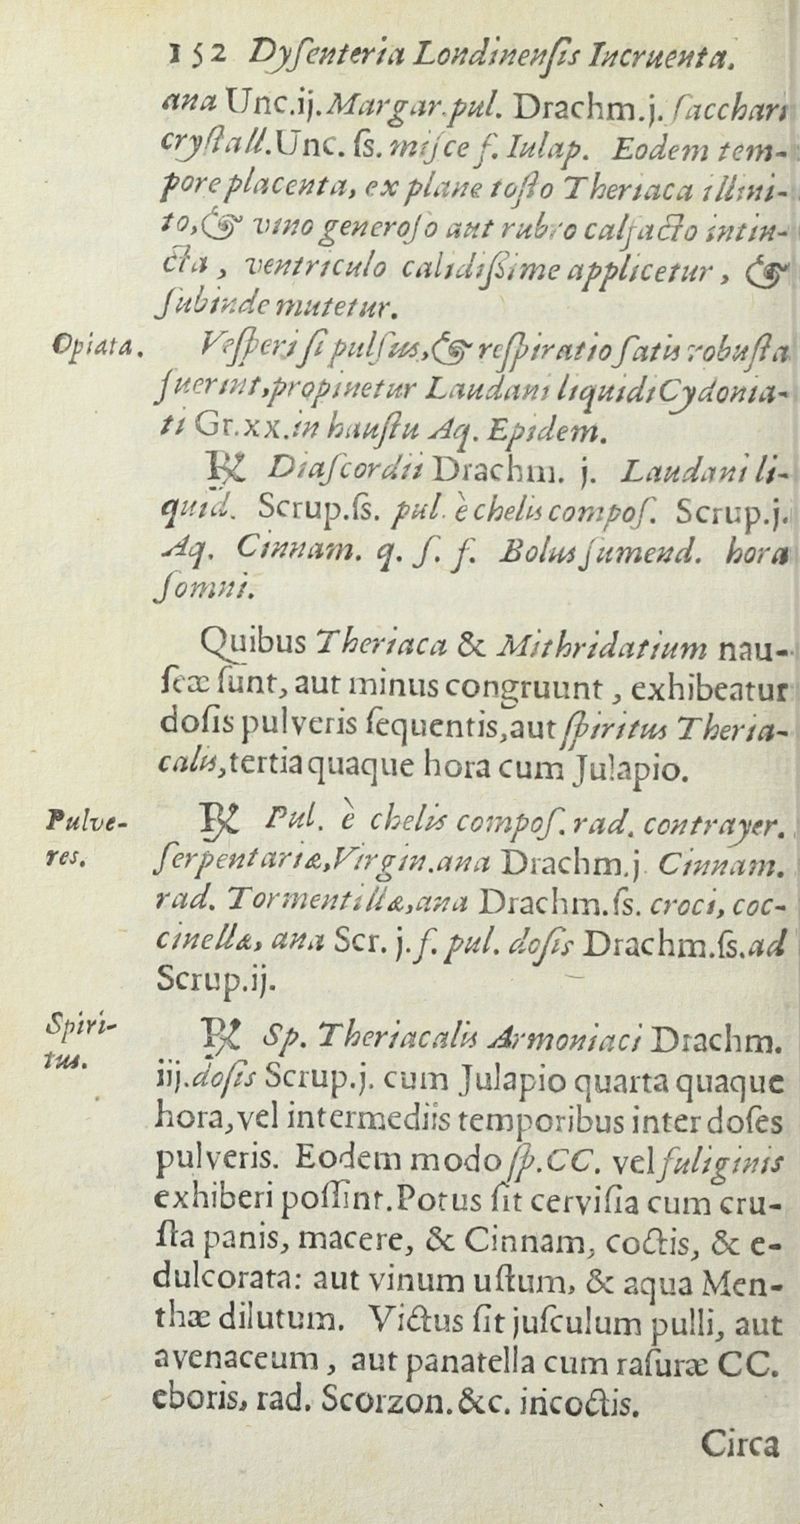 152 Dyſenteria Londinenſis Incruenta.
ana Unc.ij. Margar. pul. Drachm.j. ſacchari
cryſtall. Unc. ſs. miſce f. Iulap. Eodem tem-
pore placenta, ex plane toſto Theriaca illini-
to, & vino generoſo aut rubro calfacto intin-
cta, ventriculo calidiſſime applicetur, &
ſubinde mutetur.
Opiata.
Veſperi ſi pulſus, & reſpiratio ſatis robuſta
fuerint, propinetur Laudani liquidi Cydonia-
ti Gr.xx. in hauſtu Aq. Epidem.
℞ Diaſcordii Drachm. j. Laudani li-
quid. Scrup.ſs. pul. è chelis compoſ. Scrup.j.
Aq. Cinnam. q. ſ. f. Bolus ſumend. hora
ſomni.
Quibus Theriaca & Mithridatium nau-
ſeæ ſunt, aut minus congruunt, exhibeatur
doſis pulveris ſequentis, aut ſpiritus Theria-
calis, tertia quaque hora cum Julapio.
Pulve-
res.
℞ Pul. è chelis compoſ. rad. contrayer.
ſerpentariæ, Virgin. ana Drachm.j. Cinnam.
rad. Tormentillæ, ana Drachm.ſs. croci, coc-
cinellæ, ana Scr. j. f. pul. doſis Drachm.ſs. ad
Scrup.ij.
Spiri-
tus.
℞ Sp. Theriacalis Armoniaci Drachm.
iij. doſis Scrup.j. cum Julapio quarta quaque
hora, vel intermediis temporibus inter doſes
pulveris. Eodem modo ſp. CC. vel fuliginis
exhiberi poſſint. Potus ſit cerviſia cum cru-
ſta panis, macere, & Cinnam, coctis, & e-
dulcorata: aut vinum uſtum, & aqua Men-
thæ dilutum. Victus ſit juſculum pulli, aut
avenaceum, aut panatella cum raſuræ CC.
eboris, rad. Scorzon. &c. incoctis.
Circa